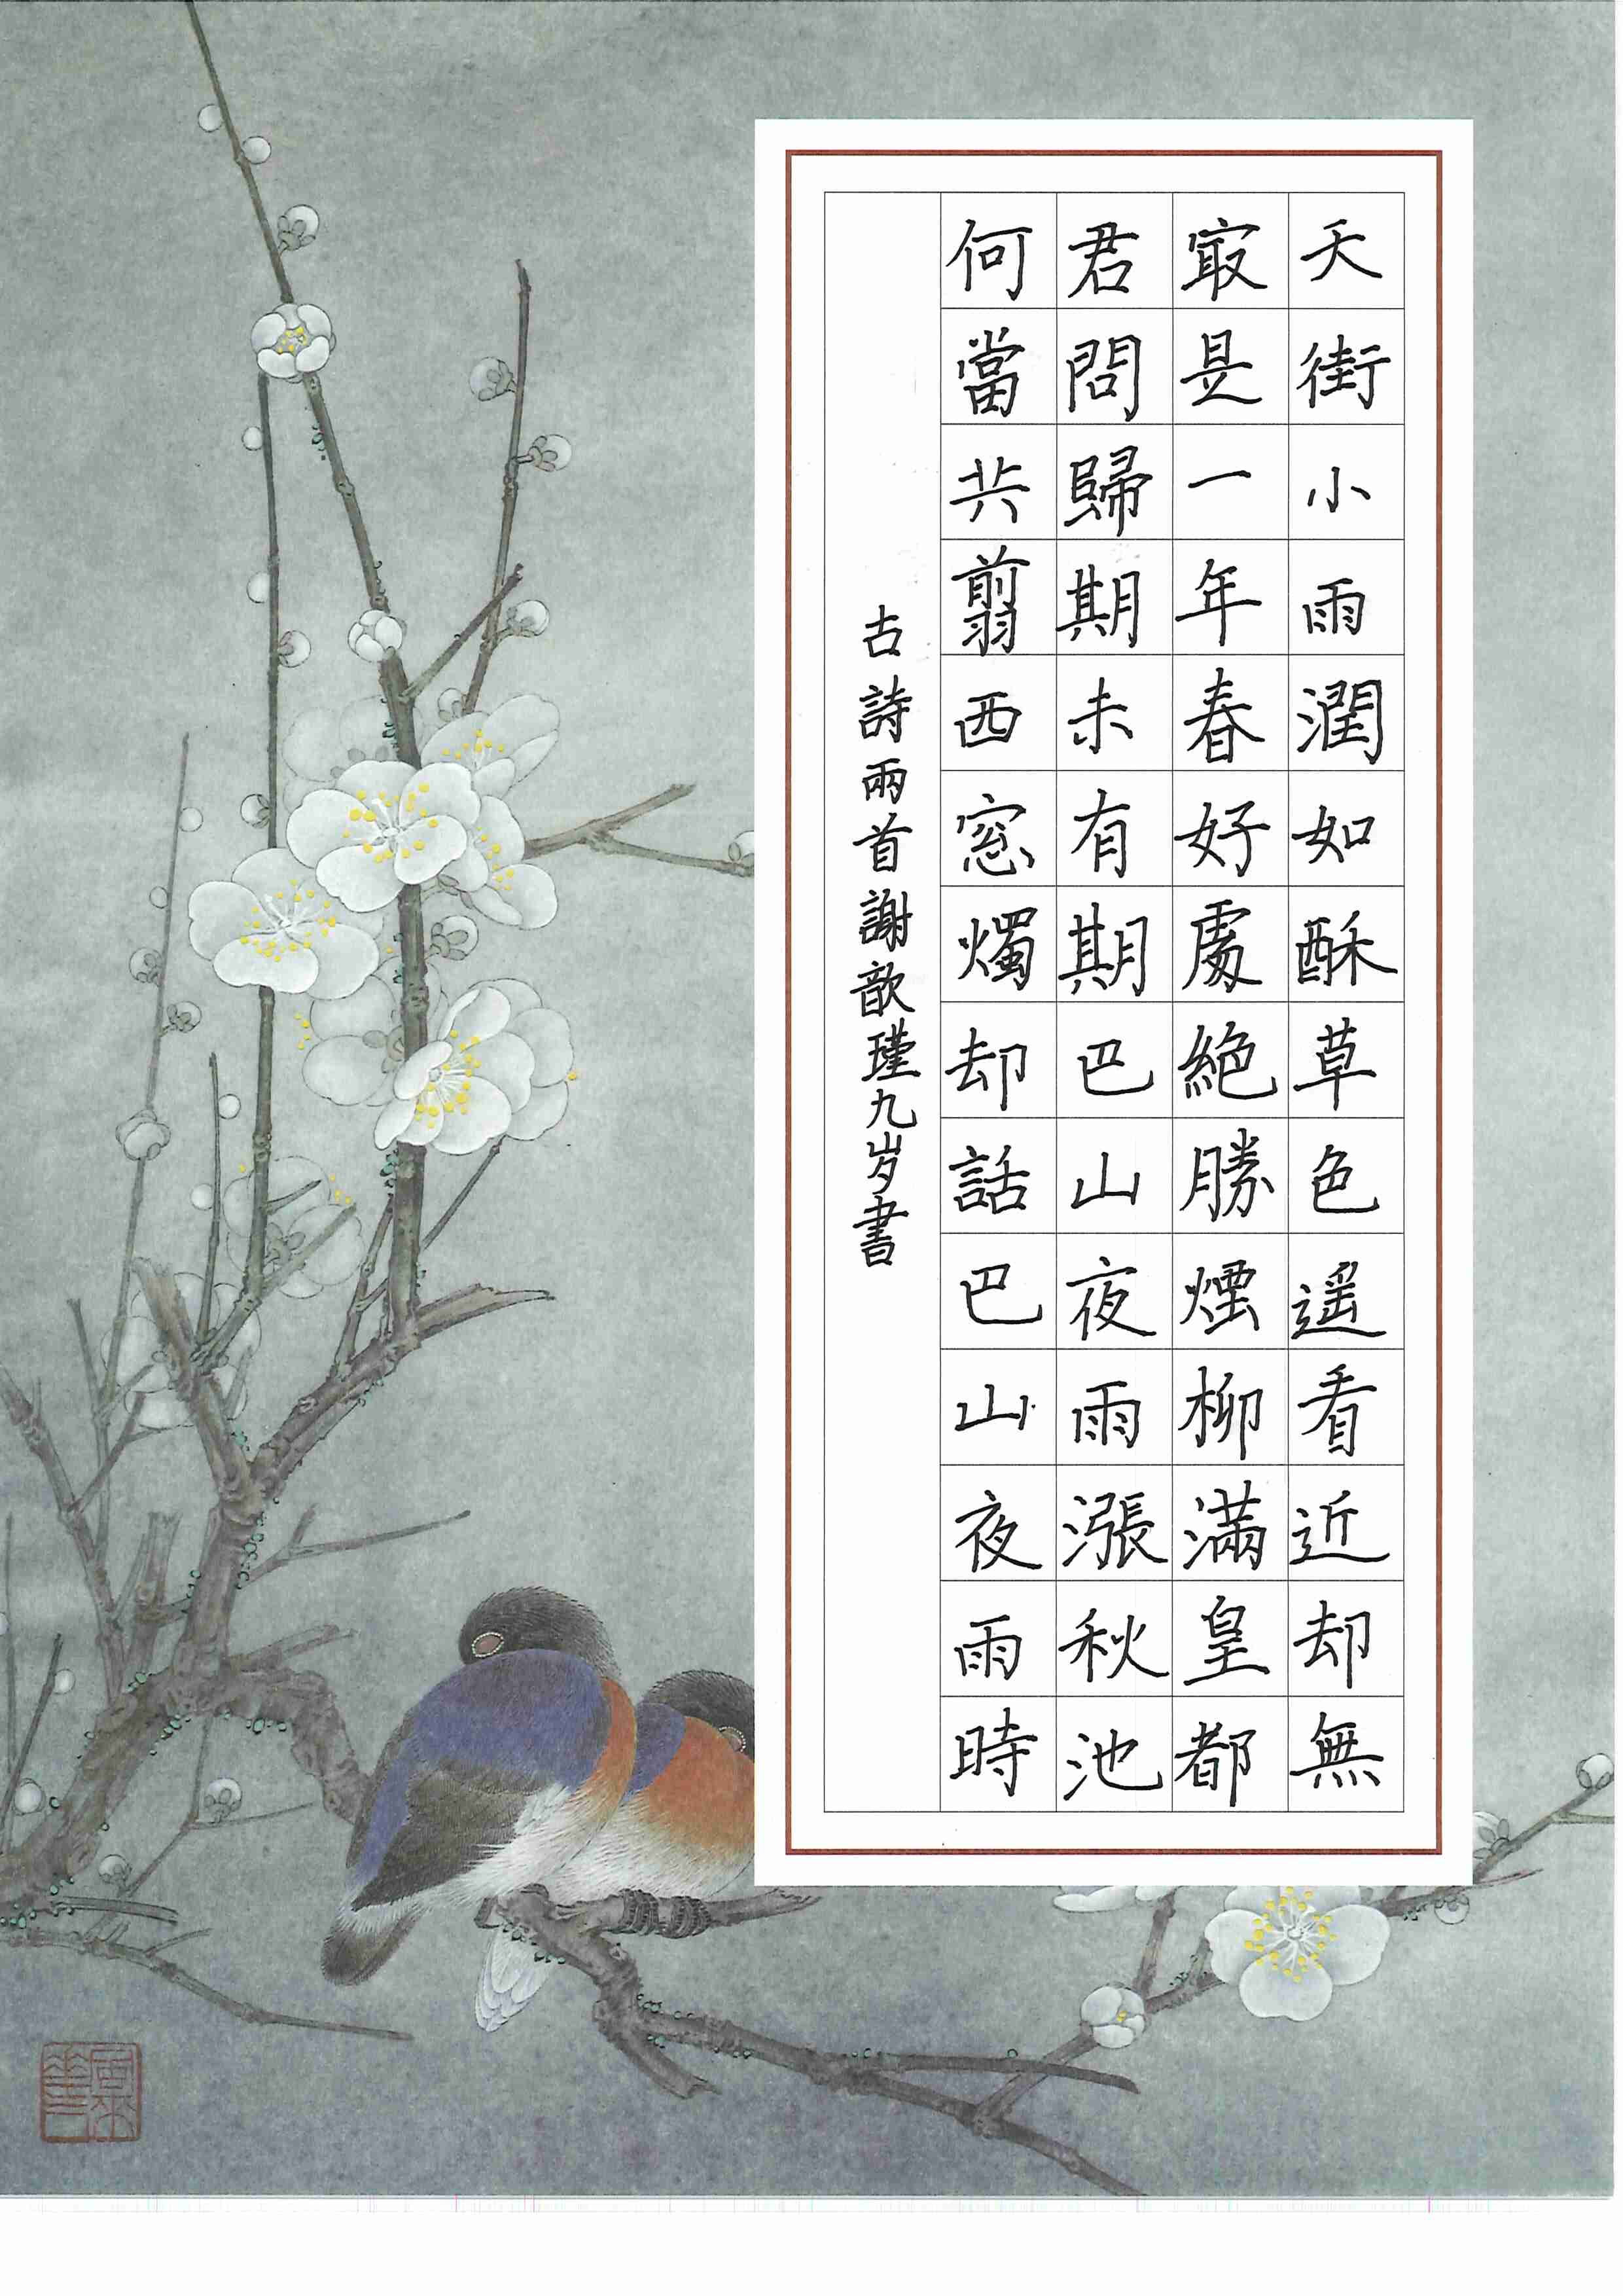 天街小雨潤如酥草色遥看近却無
㝡是一年春好處絶勝煙柳滿皇都
君問歸期未有期巴山夜雨漲秋池
何當共翦西窓燭却話巴山夜雨時
古詩兩首謝歆瑾九岁書